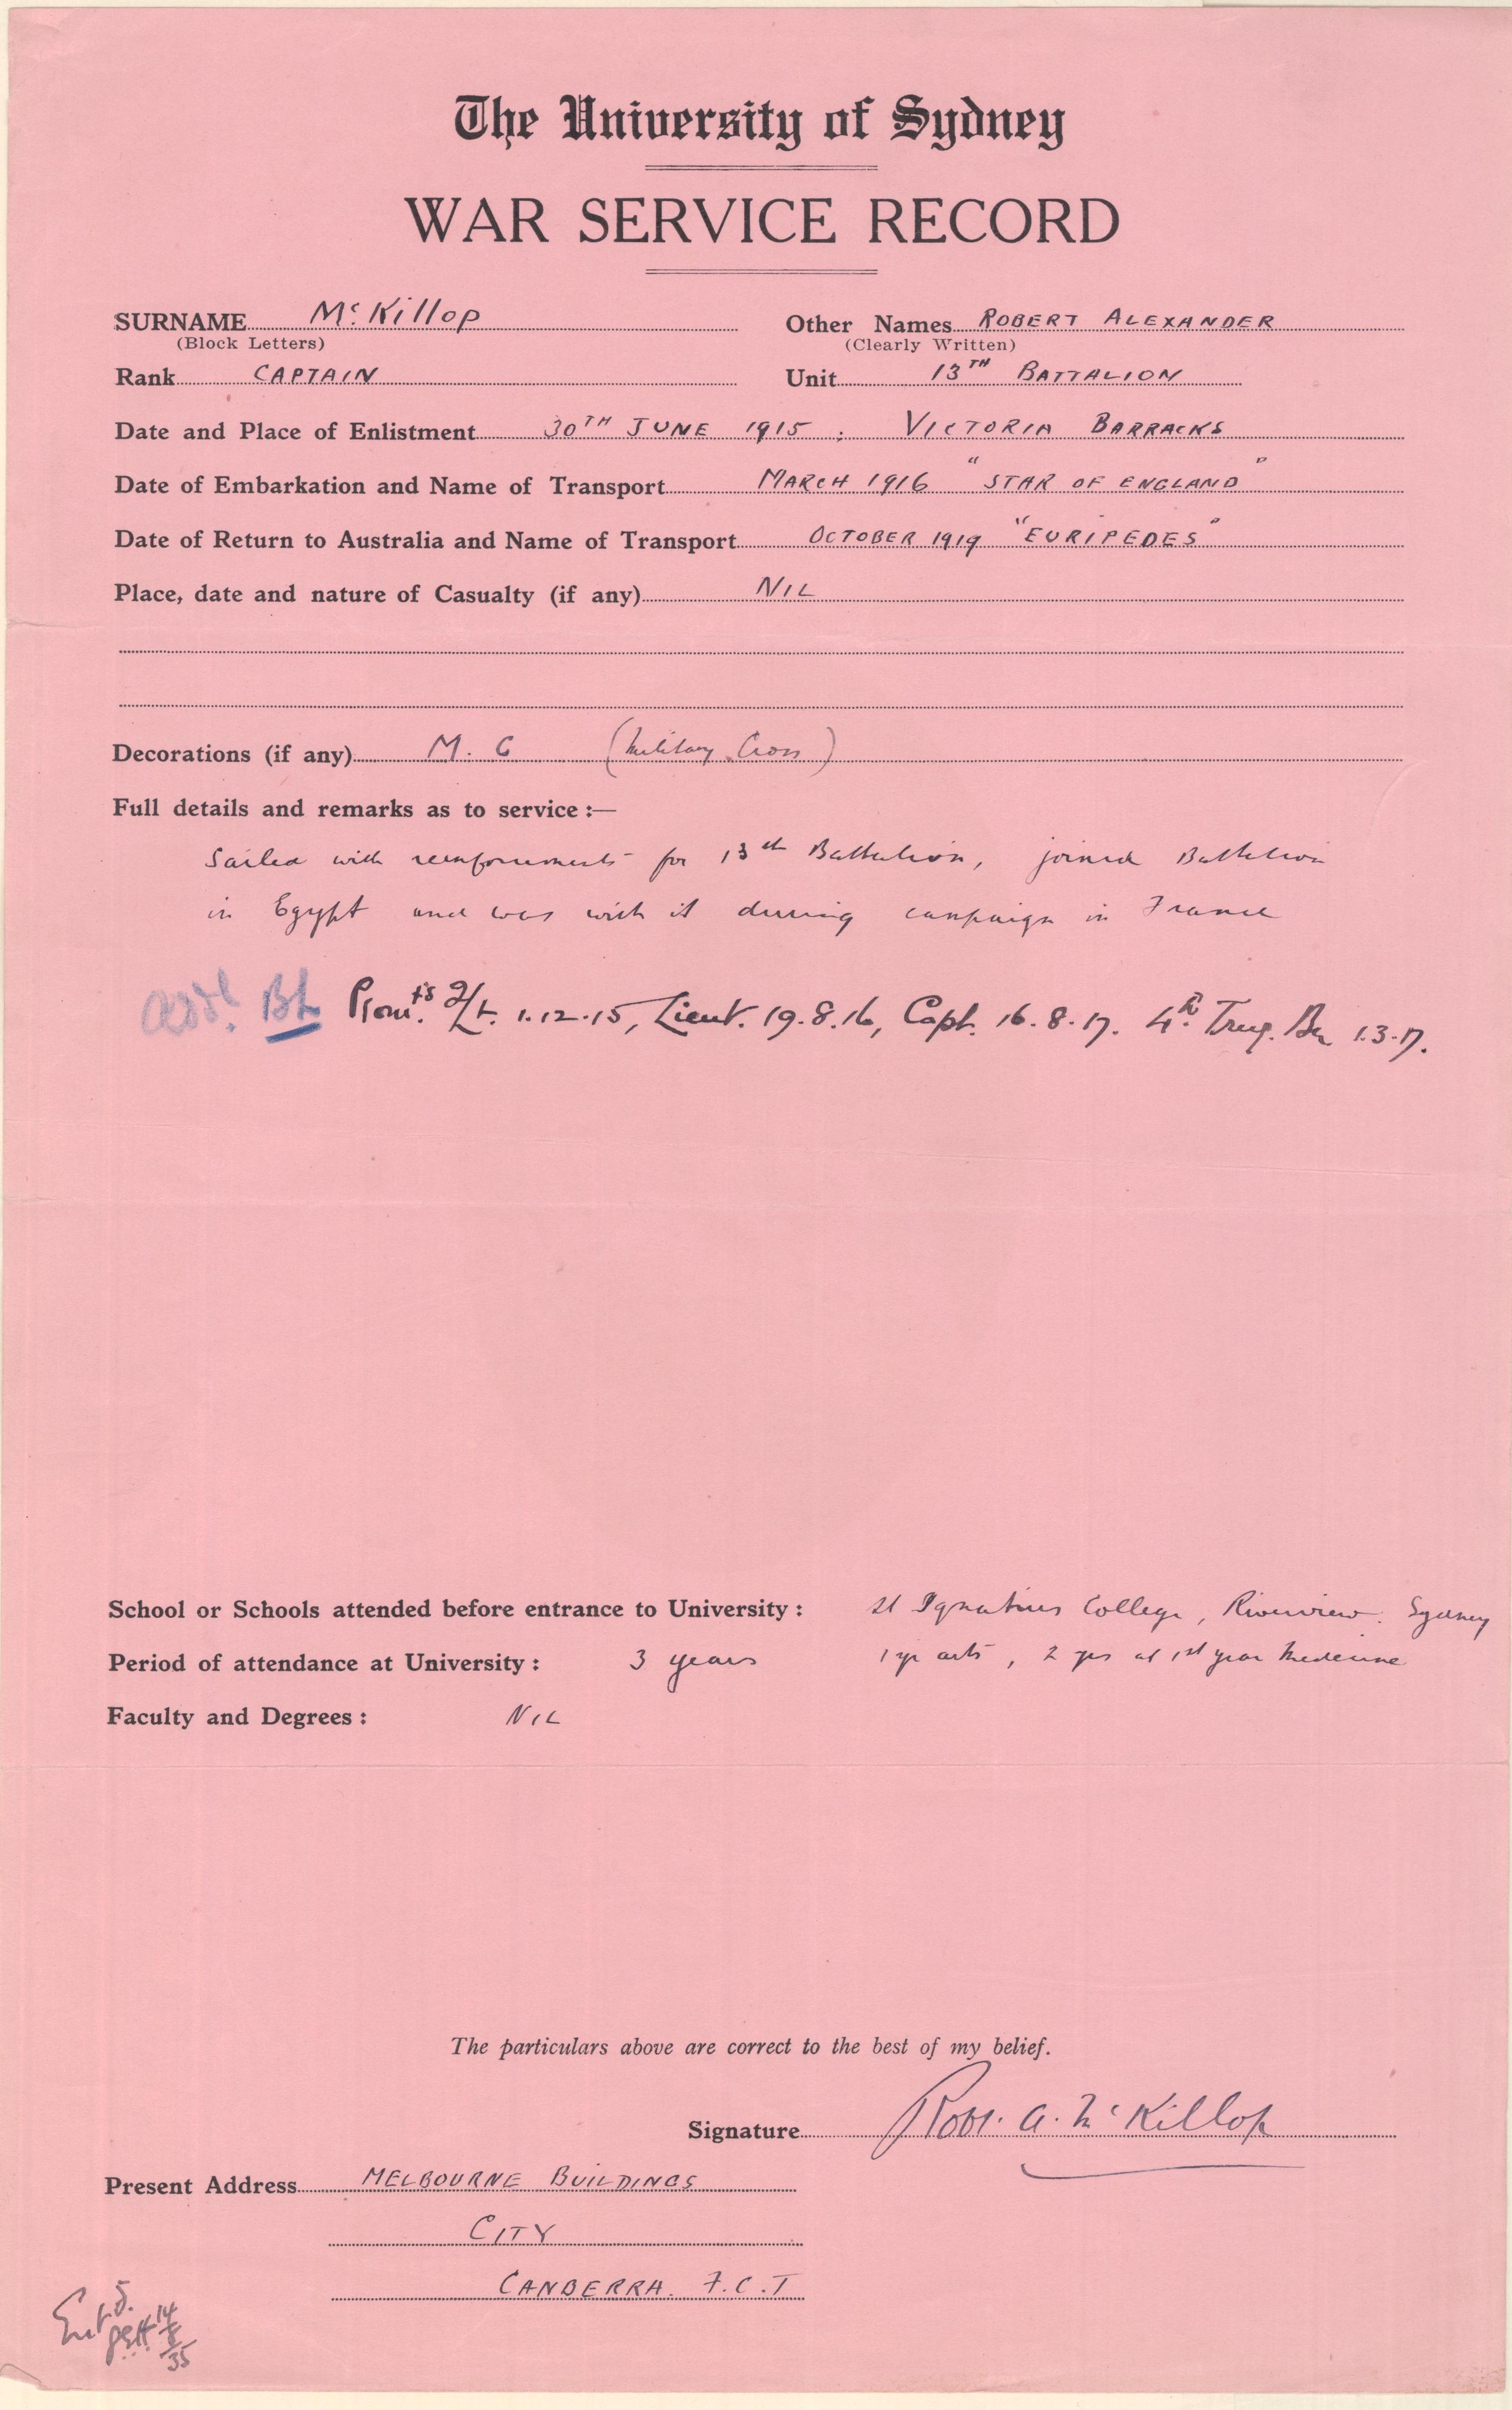 The University of Sydney
WAR SERVICE RECORD
SURNAME McKillop Other Names ROBERT ALEXANDER
(Block Letters) (Clearly Written)
Rank CAPTAIN Unit 13TH BATTALION
Date and Place of Enlistment 30TH JUNE 1915 : VICTORIA BARRACKS
Date of Embarkation and Name of Transport MARCH 1916 "STAR OF ENGLAND"
Date of Return to Australia and Name of Transport OCTOBER 1919 "EURIPEDES"
Place, date and nature of Casualty (if any) NIL
Decorations (if any) M.C (Military Cross)
Full details and remarks as to service :—
Sailed with reinforcements for 13th Battalion, joined Battalion
in Egypt and was with it during campaign in France
Prom.ts 2/Lt. 1.12.15, Lieut. 19.8.16, Capt. 16.8.17. 4th Trng. Bn 1.3.17.
School or Schools attended before entrance to University : St Ignatius College, Riverview. Sydney
Period of attendance at University : 3 years 1 yr arts, 2 yrs at 1st year Medicine
Faculty and Degrees : NIL
The particulars above are correct to the best of my belief.
Signature Robt. A. McKillop
Present Address MELBOURNE BUILDINGS
CITY
CANBERRA. F.C.T
14
8
35